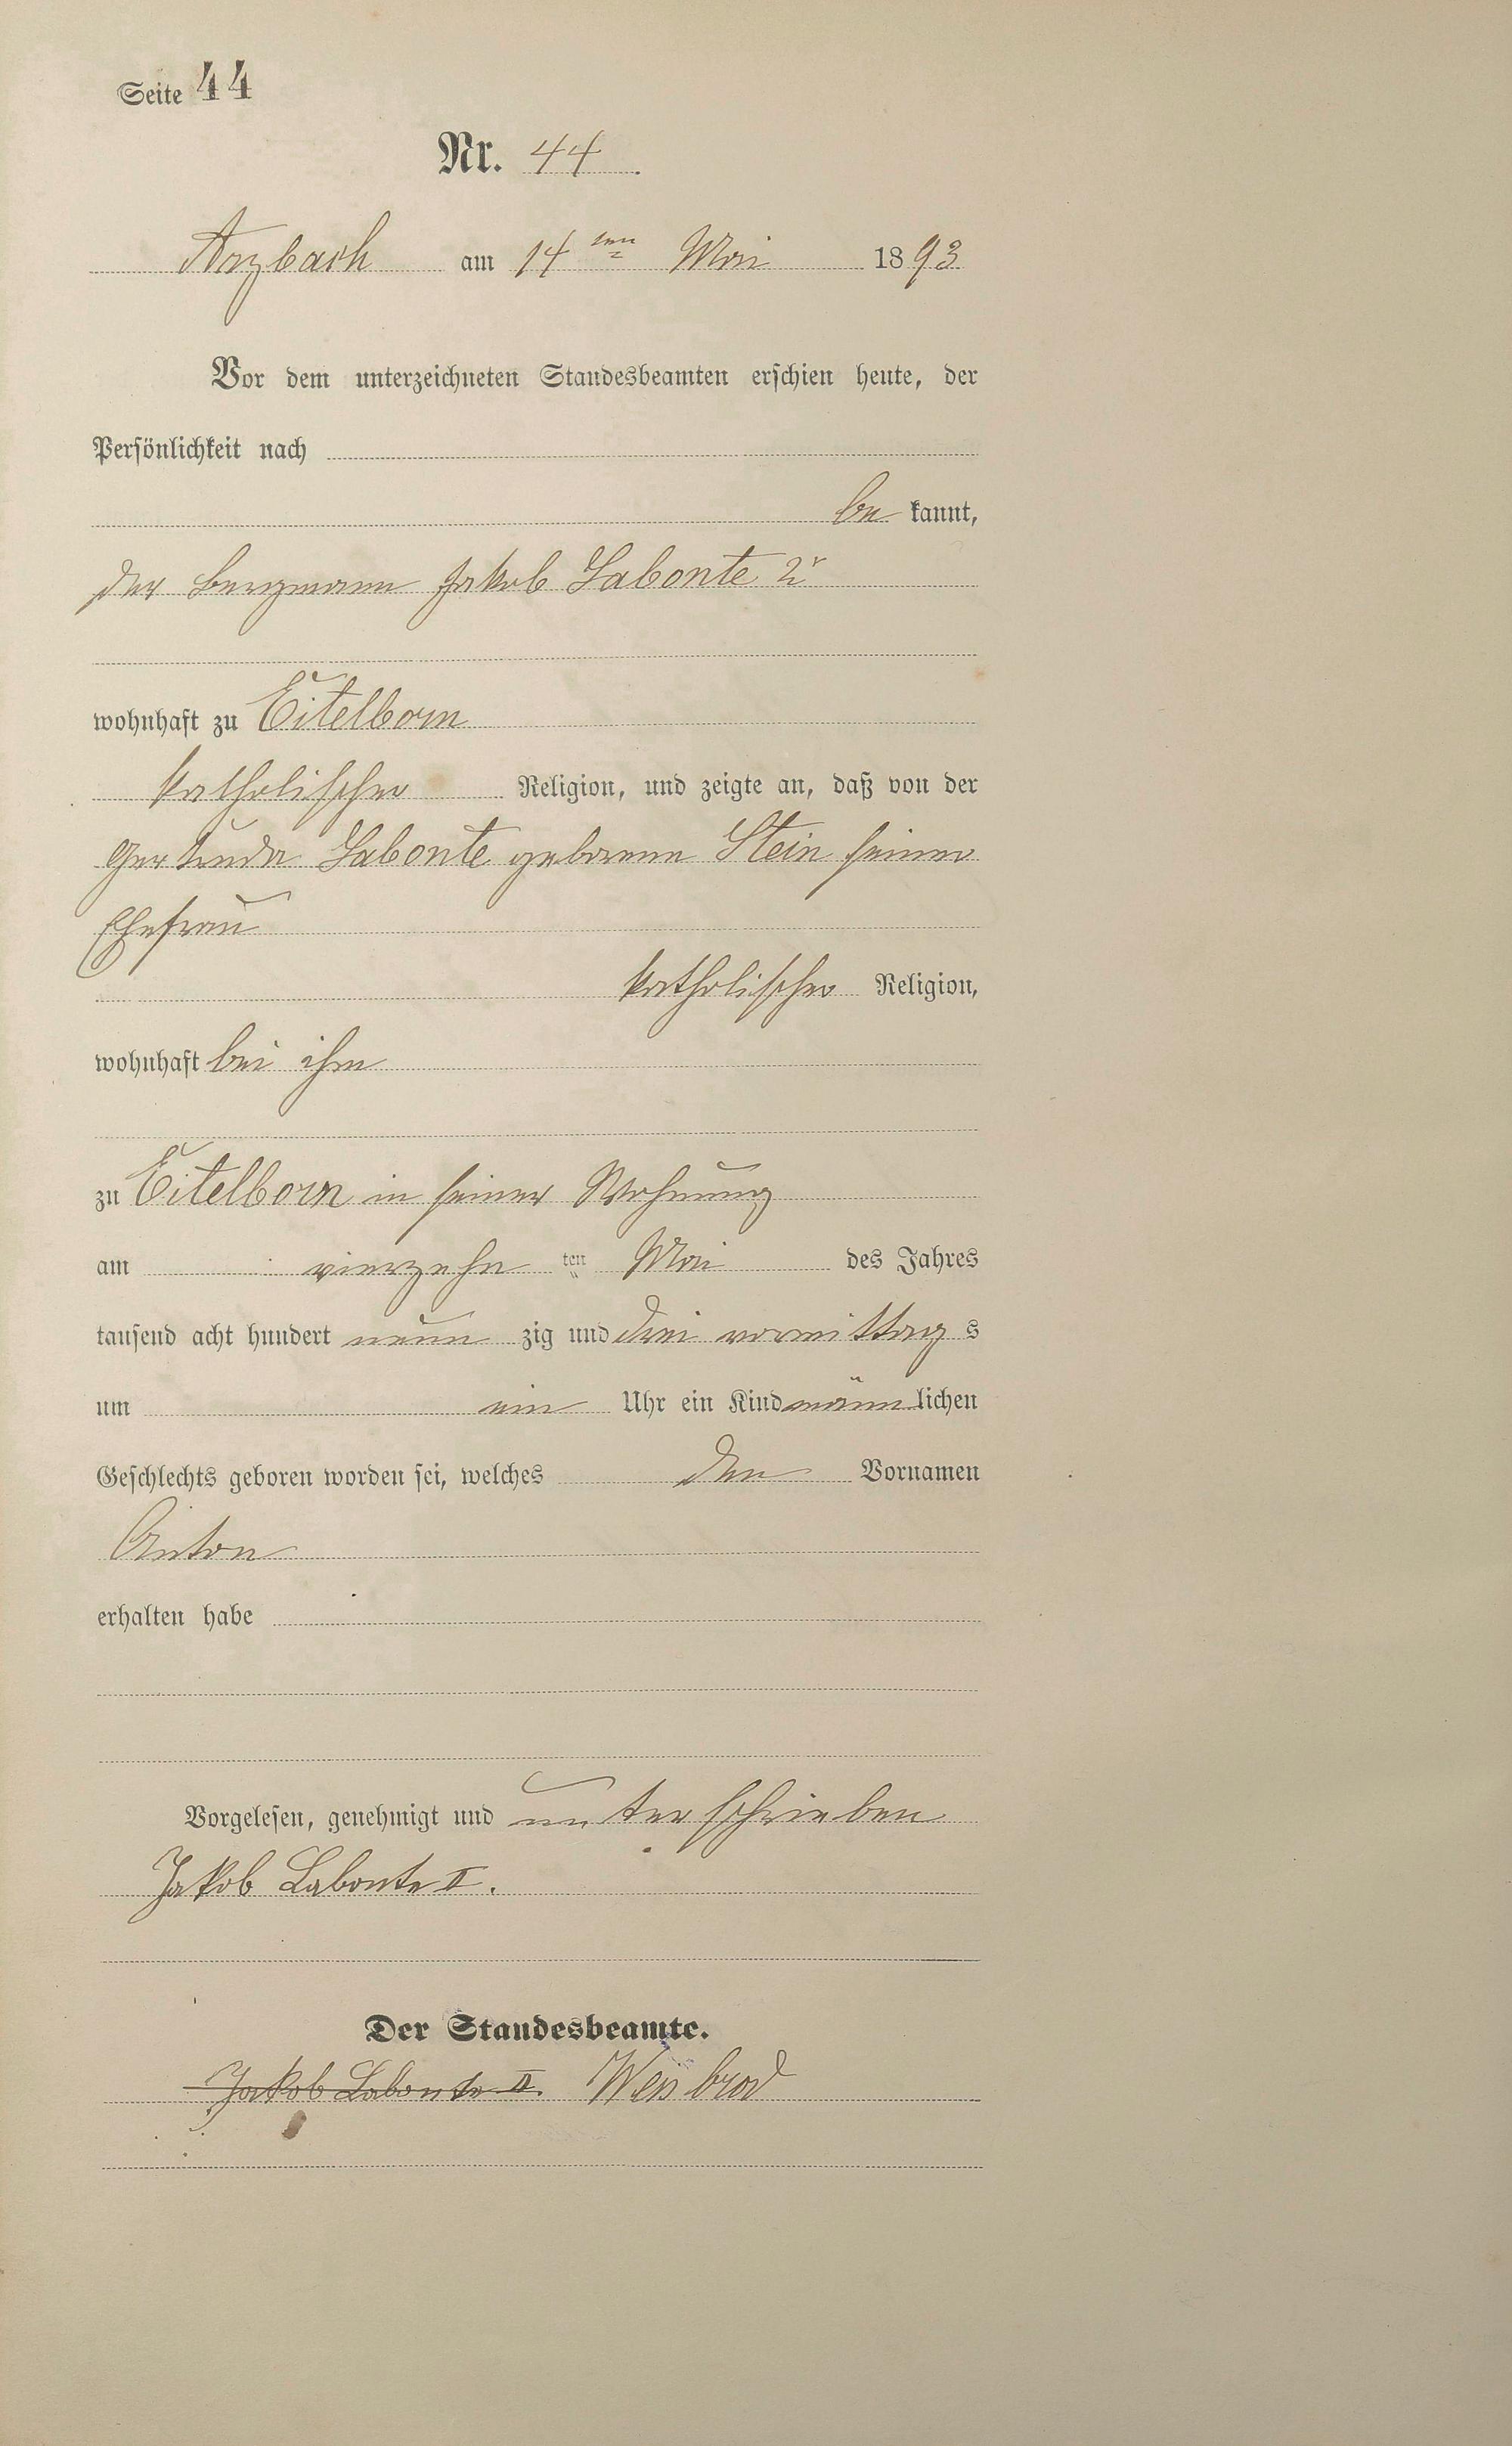 Seite 44
Nr. 44.
Arzbach am 14ten Mai 1893
Vor dem unterzeichneten Standesbeamten erschien heute, der
Persönlichkeit nach
be kannt,
der Bergmann Jakob Labonte 2r
wohnhaft zu Eitelborn
katholischer Religion, und zeigte an, daß von der
Gertruda Labonte geborene Stein seiner
Ehefrau
katholischer Religion,
wohnhaft bei ihm
zu Eitelborn in seiner Wohnung
am vierzehn ten Mai des Jahres
tausend acht hundert neun zig und drei vormittag s
um ein Uhr ein Kind männ lichen
Geschlechts geboren worden sei, welches den Vornamen
Anton
erhalten habe
Vorgelesen, genehmigt und unterschrieben
Jakob Labonte II.
Der Standesbeamte.
Jakob Labonte II. Weisbrod